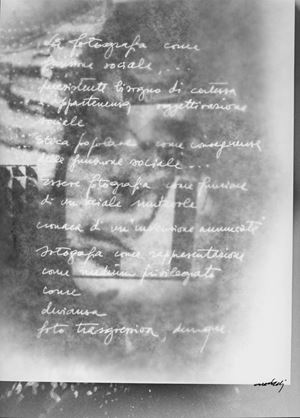 la fotografia come
funzione sociale,...
preesistente bisogno di certezza
appartenenza, oggettivazione
sociale
etica popolare come conseguenza
della funzione sociale...
essere fotografia come funzione
di un sociale mutevole
cronaca di un'invenzione annunciata
fotografia come rappresentazione
come medium privilegiato
come
devianza
foto trasgressiva, dunque.